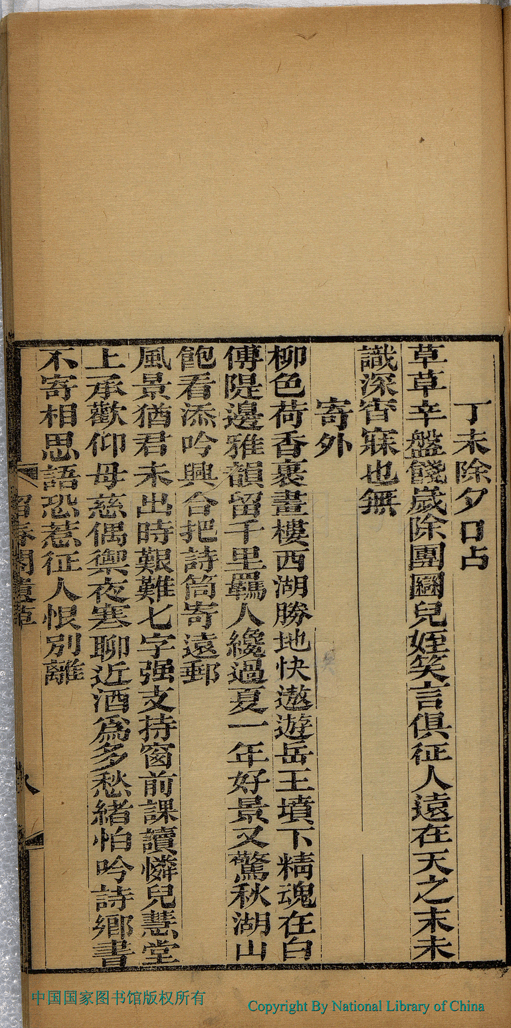 丁未除夕口占
草草辛盤餞歲除團圞兒姪笑言俱征人遠在天之末未
識深宵寐也無
寄外
柳色荷香裹畫樓西湖勝地快遨遊岳王墳下精魂在白
傅隄邊雅韻留千里羈人纔過夏一年好景又驚秋湖山
飽看添吟興合把詩筒寄遠郵
風景猶君未出時艱難七字强支持窗前課讀憐兒慧堂
上承歡仰母慈偶禦夜寒聊近酒爲多愁緒怕吟詩鄉書
不寄相思語恐惹征人恨別離
留春閣遺草
八
中国国家图书馆版权所有
Copyright By National Library of China